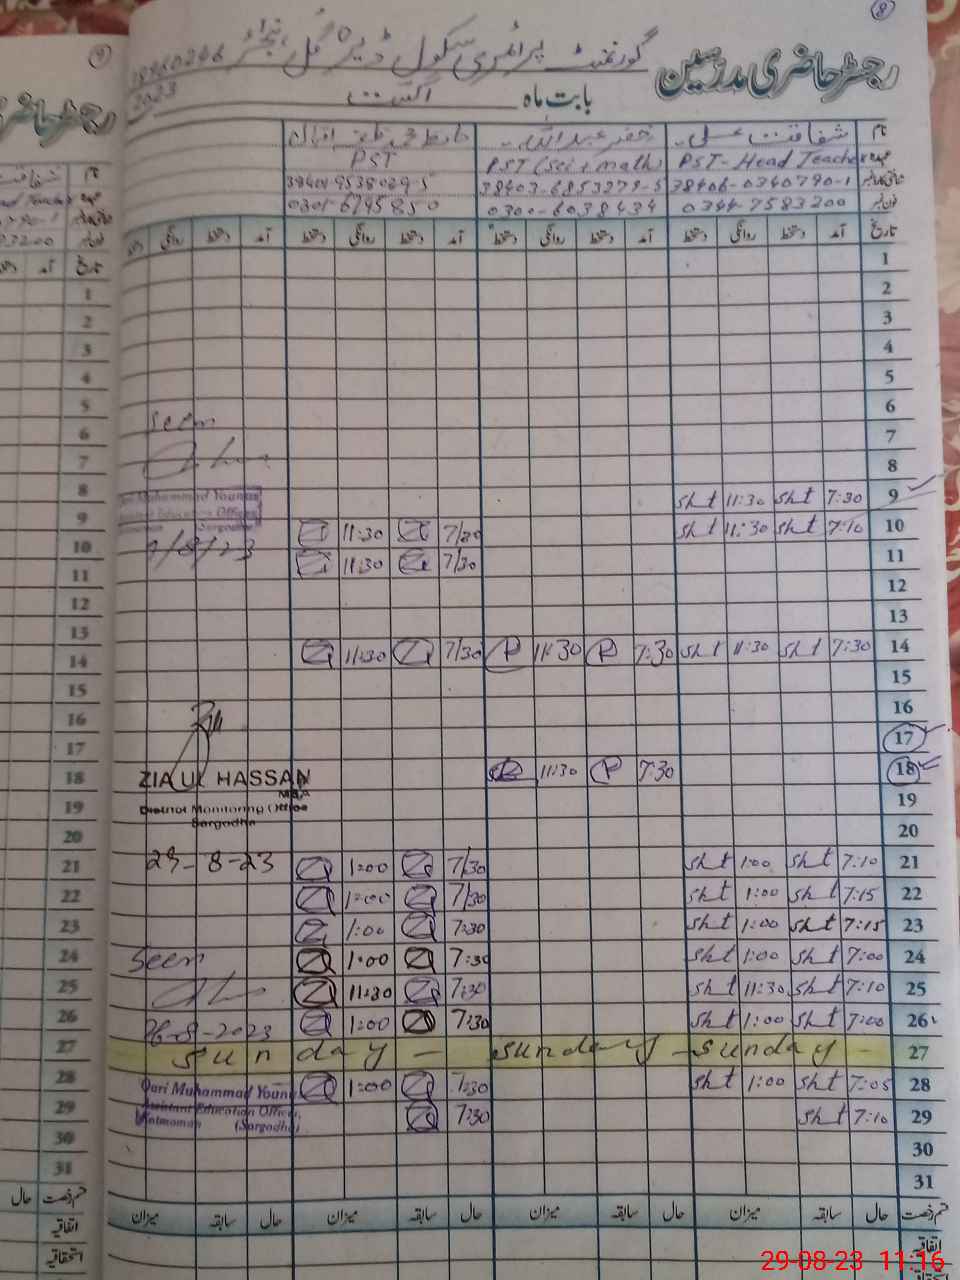 8
رجسٹر حاضری مدرسین
گورنمنٹ پرائمری سکول
2023
بابت ماہ اگست
نام شفاقت علی
PST PST (Sci + math) PST-Head Teacher عہدہ
38403-6853279-5 38406-0340790-1
0301-6795850 0300-6038434 0344-7583200
تاریخ آمد دستخط روانگی دستخط آمد دستخط روانگی دستخط آمد دستخط روانگی دستخط
1
2
3
4
5
6
Seen
7
8
Qari Muhammad Younas
Sht 11:30 Sht 7:30 9
Assistant Education Officer
(Sargodha)
11:30 7/20 Sht 11:30 Sht 7:10 10
11:30 7/30 11
12
13
11:30 7/30 P 11:30 P 7:30 Sht 11:30 Sht 7:30 14
15
16
17
11:30 P 7:30 18
ZIA UL HASSAN
MEA
19
District Monitoring Office
Sargodha
20
29-8-23 1:00 7/30 Sht 1:00 Sht 7:10 21
1:00 7/30 Sht 1:00 Sht 7:15 22
1:00 7:30 Sht 1:00 Sht 7:15 23
Seen 1:00 7:30 Sht 1:00 Sht 7:00 24
11:30 7:30 Sht 11:30 Sht 7:10 25
26-8-2023 1:00 7:30 Sht 1:00 Sht 7:00 26
Sunday - Sunday - Sunday - 27
Qari Muhammad Younas 1:00 7:30 Sht 1:00 Sht 7:05 28
Assistant Education Officer,
7:30 Sht 7:10 29
(Sargodha)
30
31
قسم رخصت حال سابقہ میزان حال سابقہ میزان حال سابقہ میزان حال سابقہ میزان
اتفاقیہ
استحقاقیہ
9
رجسٹر حاضری
1
2
3
4
5
6
7
8
9
10
11
12
13
14
15
16
17
18
19
20
21
22
23
24
25
26
27
28
29
30
31
قسم رخصت حال
اتفاقیہ
استحقاقیہ
29-08-23 11:16